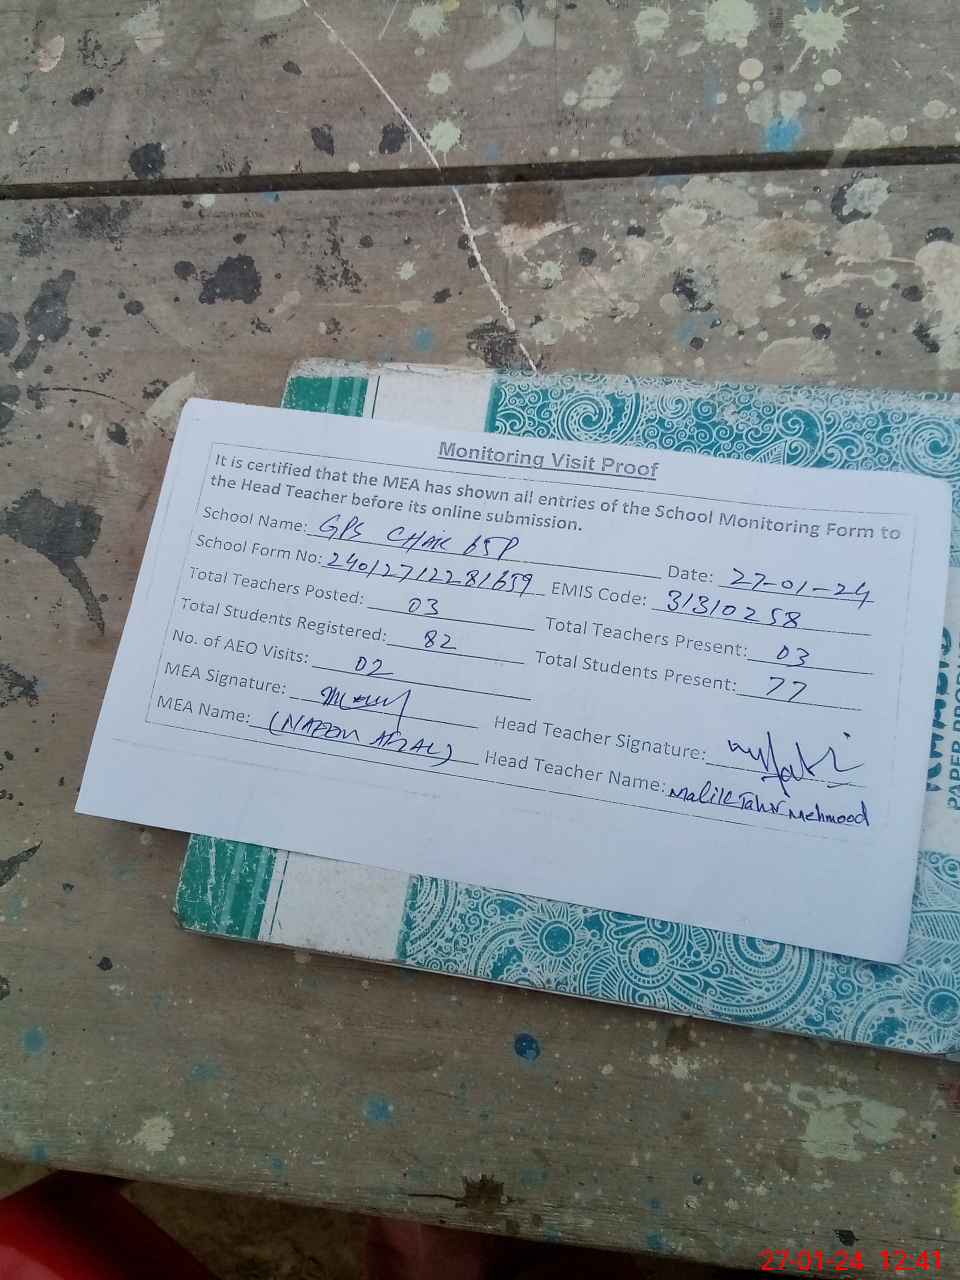 Monitoring Visit Proof
It is certified that the MEA has shown all entries of the School Monitoring Form to
the Head Teacher before its online submission.
School Name: GPS CHAK 65P Date: 27-01-24
School Form No: 240127122281659 EMIS Code: 31310258
Total Teachers Posted: 03 Total Teachers Present: 03
Total Students Registered: 82 Total Students Present: 77
No. of AEO Visits: 02
MEA Signature: Head Teacher Signature:
MEA Name: Head Teacher Name: Malik Tahir Mehmood
PAPER PRODU
27-01-24 12:41